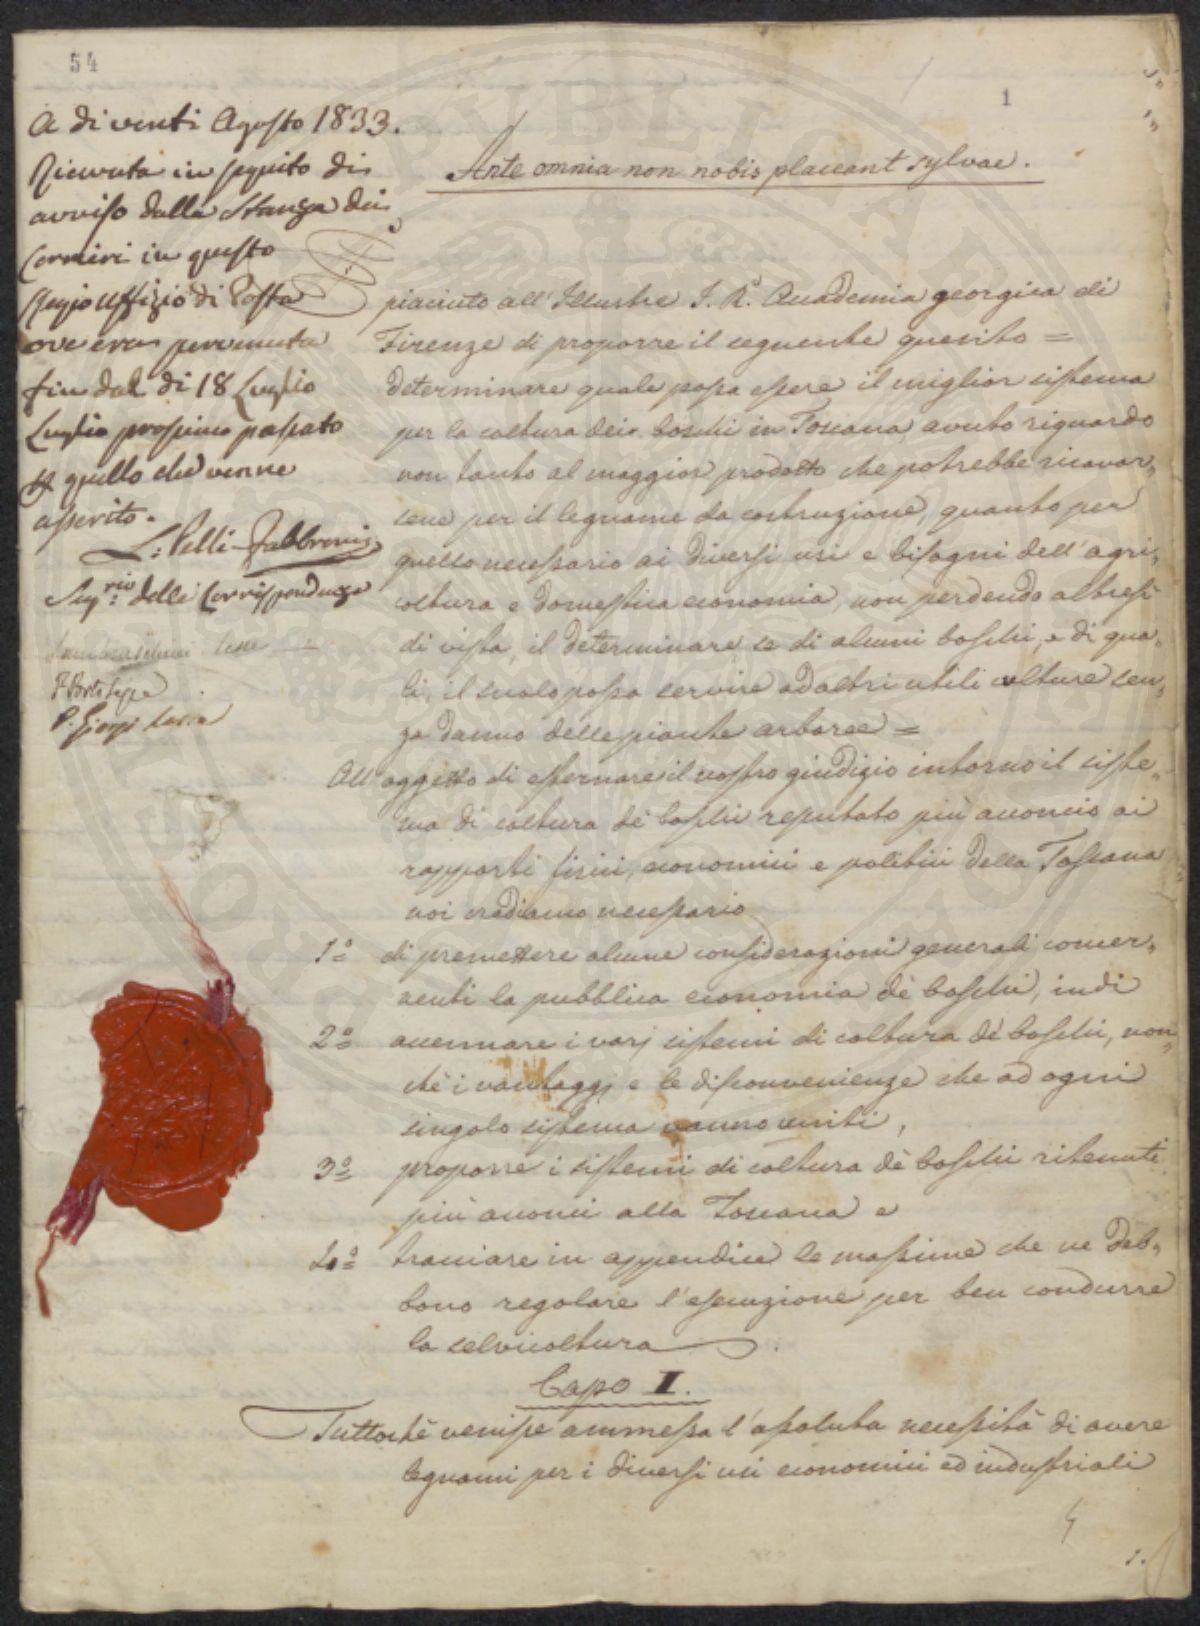 54
1
A di venti Agosto 1833.
Ricevuta in seguito di
avviso dalla Stanza dei
Corrieri in questo
Regio Uffizio di Posta
ove era pervenuta
fin dal di 18 Luglio
Luglio prossimo passato
quello che venne
asserito.
L: Pelli-Fabbroni
Seg.rio delle Corrispondenze
Ante omnia non nobis placeant sylvae.
È piaciuto all'Illustre I. R. Accademia georgica di
Firenze di proporre il seguente quesito =
determinare quale possa essere il miglior sistema
per la coltura dei boschi in Toscana, avuto riguardo
non tanto al maggior prodotto che potrebbe ricavar„
sene per il legname da costruzione, quanto per
quello necessario ai diversi usi e bisogni dell'agri„
coltura e domestica economia, non perdendo altresì
di vista, il determinare se di alcuni boschi, e di qua„
li, il suolo possa servire ad altri utili colture sen„
za danno delle piante arboree =
All'oggetto di esternare il nostro giudizio intorno il siste„
ma di coltura dè boschi reputato più acconcio ai
rapporti fisici, economici e politici della Toscana
noi crediamo necessario
1° di premettere alcune considerazioni generali concer„
nenti la pubblica economia dè boschi, indi
2° accennare i varj sistemi di coltura dè boschi, non„
chè i vantaggj e le disconvenienze che ad ogni
singolo sistema vanno uniti,
3° proporre i sistemi di coltura dè boschi ritenuti
più acconci alla Toscana e
4° tracciare in appendice le massime che ne deb„
bono regolare l'esecuzione per ben condurre
la selvicoltura
Capo I.
Tuttochè venisse ammessa l'assoluta necessità di avere
legnami per i diversi usi economici ed industriali
1.